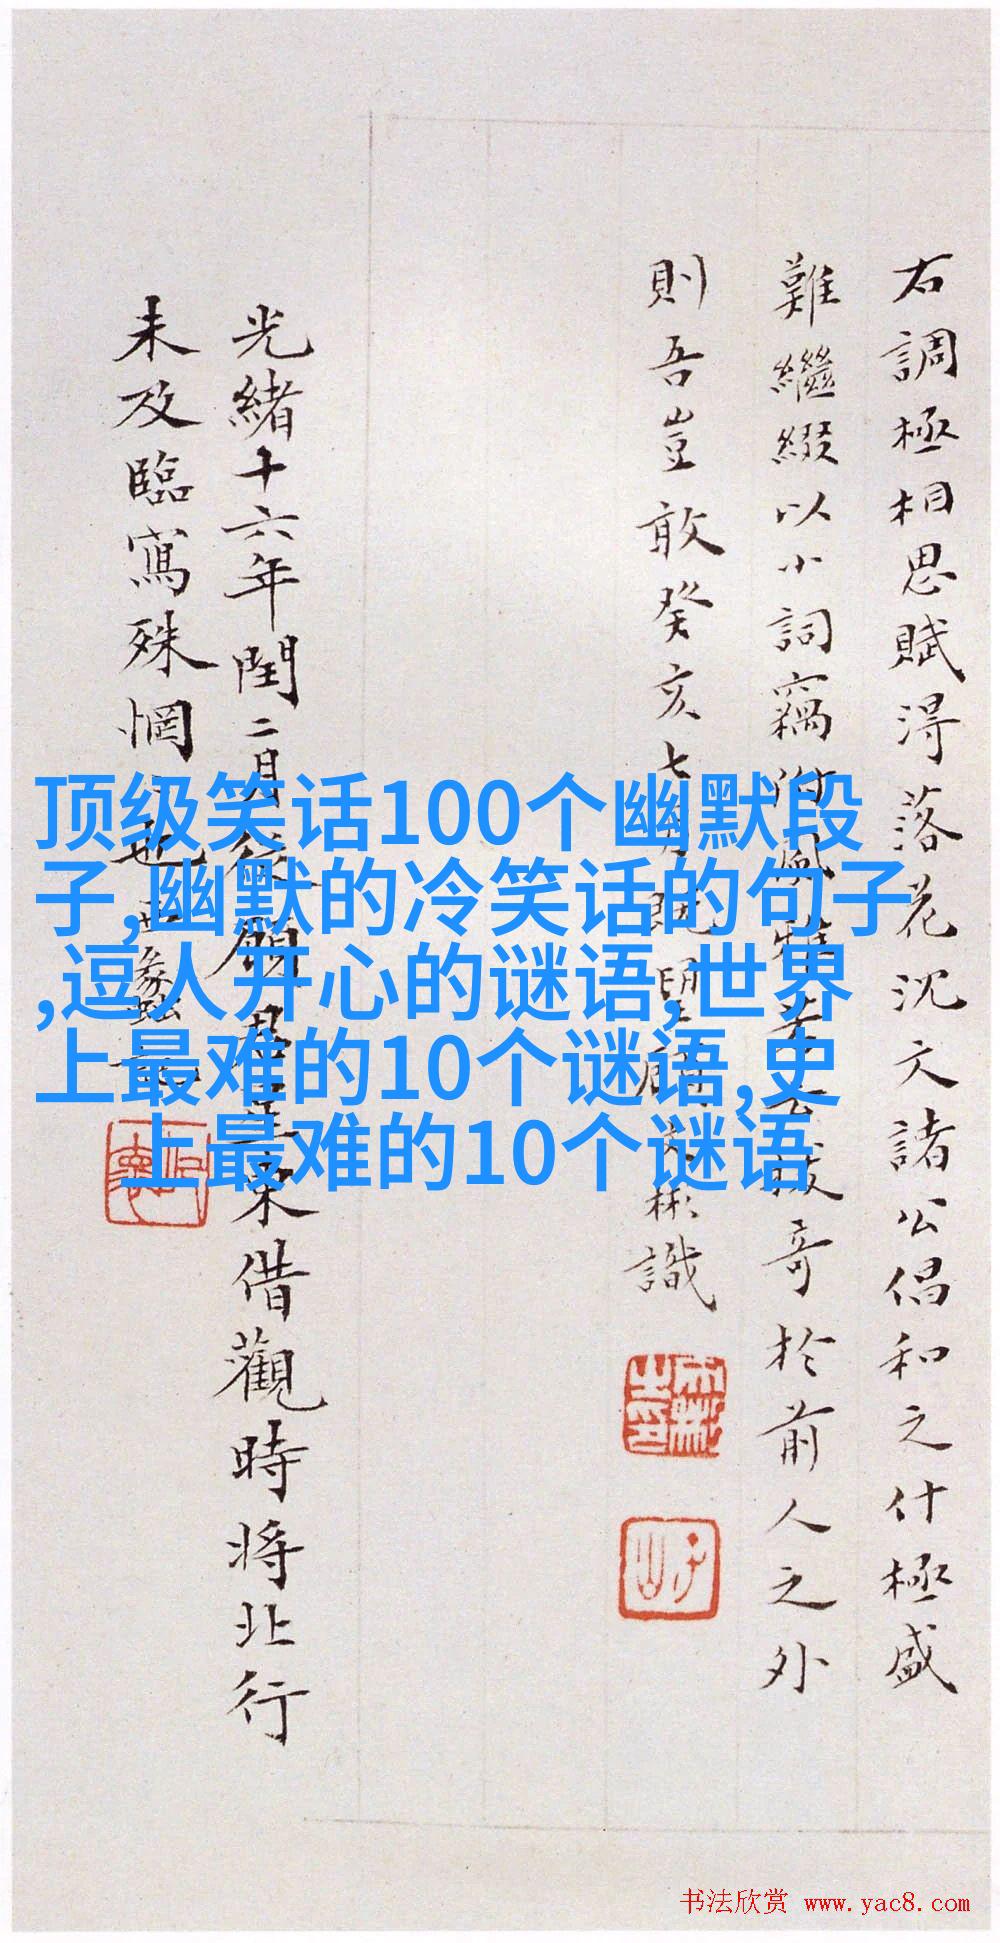 右調極相思賦得落花沈文諸公倡和之什極盛
難繼綴以小詞竊附風雅
哥於前人之外
則吾豈敢癸亥七月既
彬識
光緒十六年閏二月從
借觀時將北行
未及臨寫殊惘
也
顶级笑话100个幽默段
子,幽默的冷笑话的句子
,逗人开心的谜语,世界
上最难的10个谜语,史
上最难的10个谜语
书法欣赏 www.yac8.com